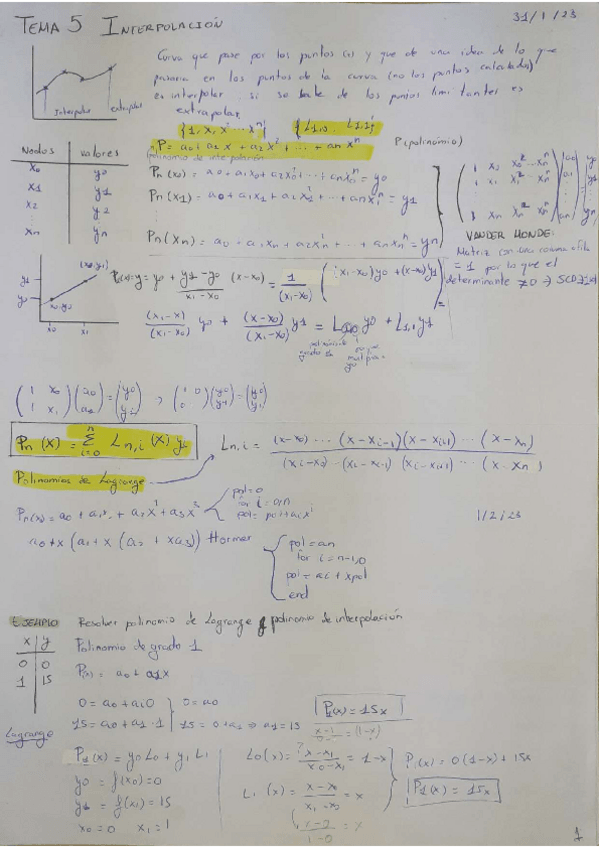 TEMA 5 INTERPOLACIÓN
31/1/23
Curva que pase por los puntos (s) y que de una idea de lo que
pasaria en los puntos de la curva (no los puntos calculados)
es interpolar, si se sale de los puntos limitantes es
extrapolar
Interpolar
extrapolar
{1, x, x² ... xⁿ} {L1,0 L1,1}
P = a0 + a1 x + a2 x² + ... + an xⁿ P (polinomio)
polinomio de interpolación
Nodos valores
x0 y0
x1 y1
x2 y2
xn yn
Pn (x0) = a0 + a1x0 + a2x0² + ... + anx0ⁿ = y0
Pn (x1) = a0 + a1x1 + a2x1² + ... + anx1ⁿ = y1
Pn (xn) = a0 + a1xn + a2xn² + ... + anxnⁿ = yn
VANDER MONDE:
Matriz con una columna o fila
= 1 por lo que el
determinante ≠0 → SCD
y1
y0
x0 x1
(x0,y0)
(x1,y1)
y = y0 + (y1 - y0)/(x1 - x0) (x-x0) = 1/(x1-x0) ((x1-x)y0 + (x-x0)y1) =
(x1-x)/(x1-x0) y0 + (x-x0)/(x1-x0) y1 = L1,0 y0 + L1,1 y1
(1 x0 / 1 x1)(a0 / a1) = (y0 / y1) ; (1 0 / 0 1)(y0 / y1) = (y0 / y1)
Pn (x) = Σ i=0 n Ln,i (x) yi
Ln,i = (x-x0) ... (x-xi-1)(x-xi+1) ... (x-xn) / (xi-x0) ... (xi-xi-1) (xi-xi+1) ... (x-xn)
Polinomios de Lagrange
Pn(x) = a0 + a1x + a2x² + a3x³
pol=0
for i=0,n
pol = pol + aixⁱ
1/2/23
a0 + x (a1 + x (a2 + xa3)) Horner
pol = an
for i = n-1,0
pol = ai + xpol
end
EJEMPLO Resolver polinomio de Lagrange y polinomio de interpolación
x y
0 0
1 15
Polinomio de grado 1
P(x) = a0 + a1x
0 = a0 + a1·0 } 0 = a0
15 = a0 + a1·1 } 15 = 0 + a1 ⇒ a1 = 15
P1(x) = 15x
Lagrange
P1(x) = y0 L0 + y1 L1
y0 = f(x0) = 0
y1 = f(x1) = 15
x0 = 0 x1 = 1
L0(x) = (x-x1)/(x0-x1) = 1-x
L1 (x) = (x-x0)/(x1-x0) = x
(x-0)/(1-0) = x
P1(x) = 0(1-x) + 15x
P1(x) = 15x
1